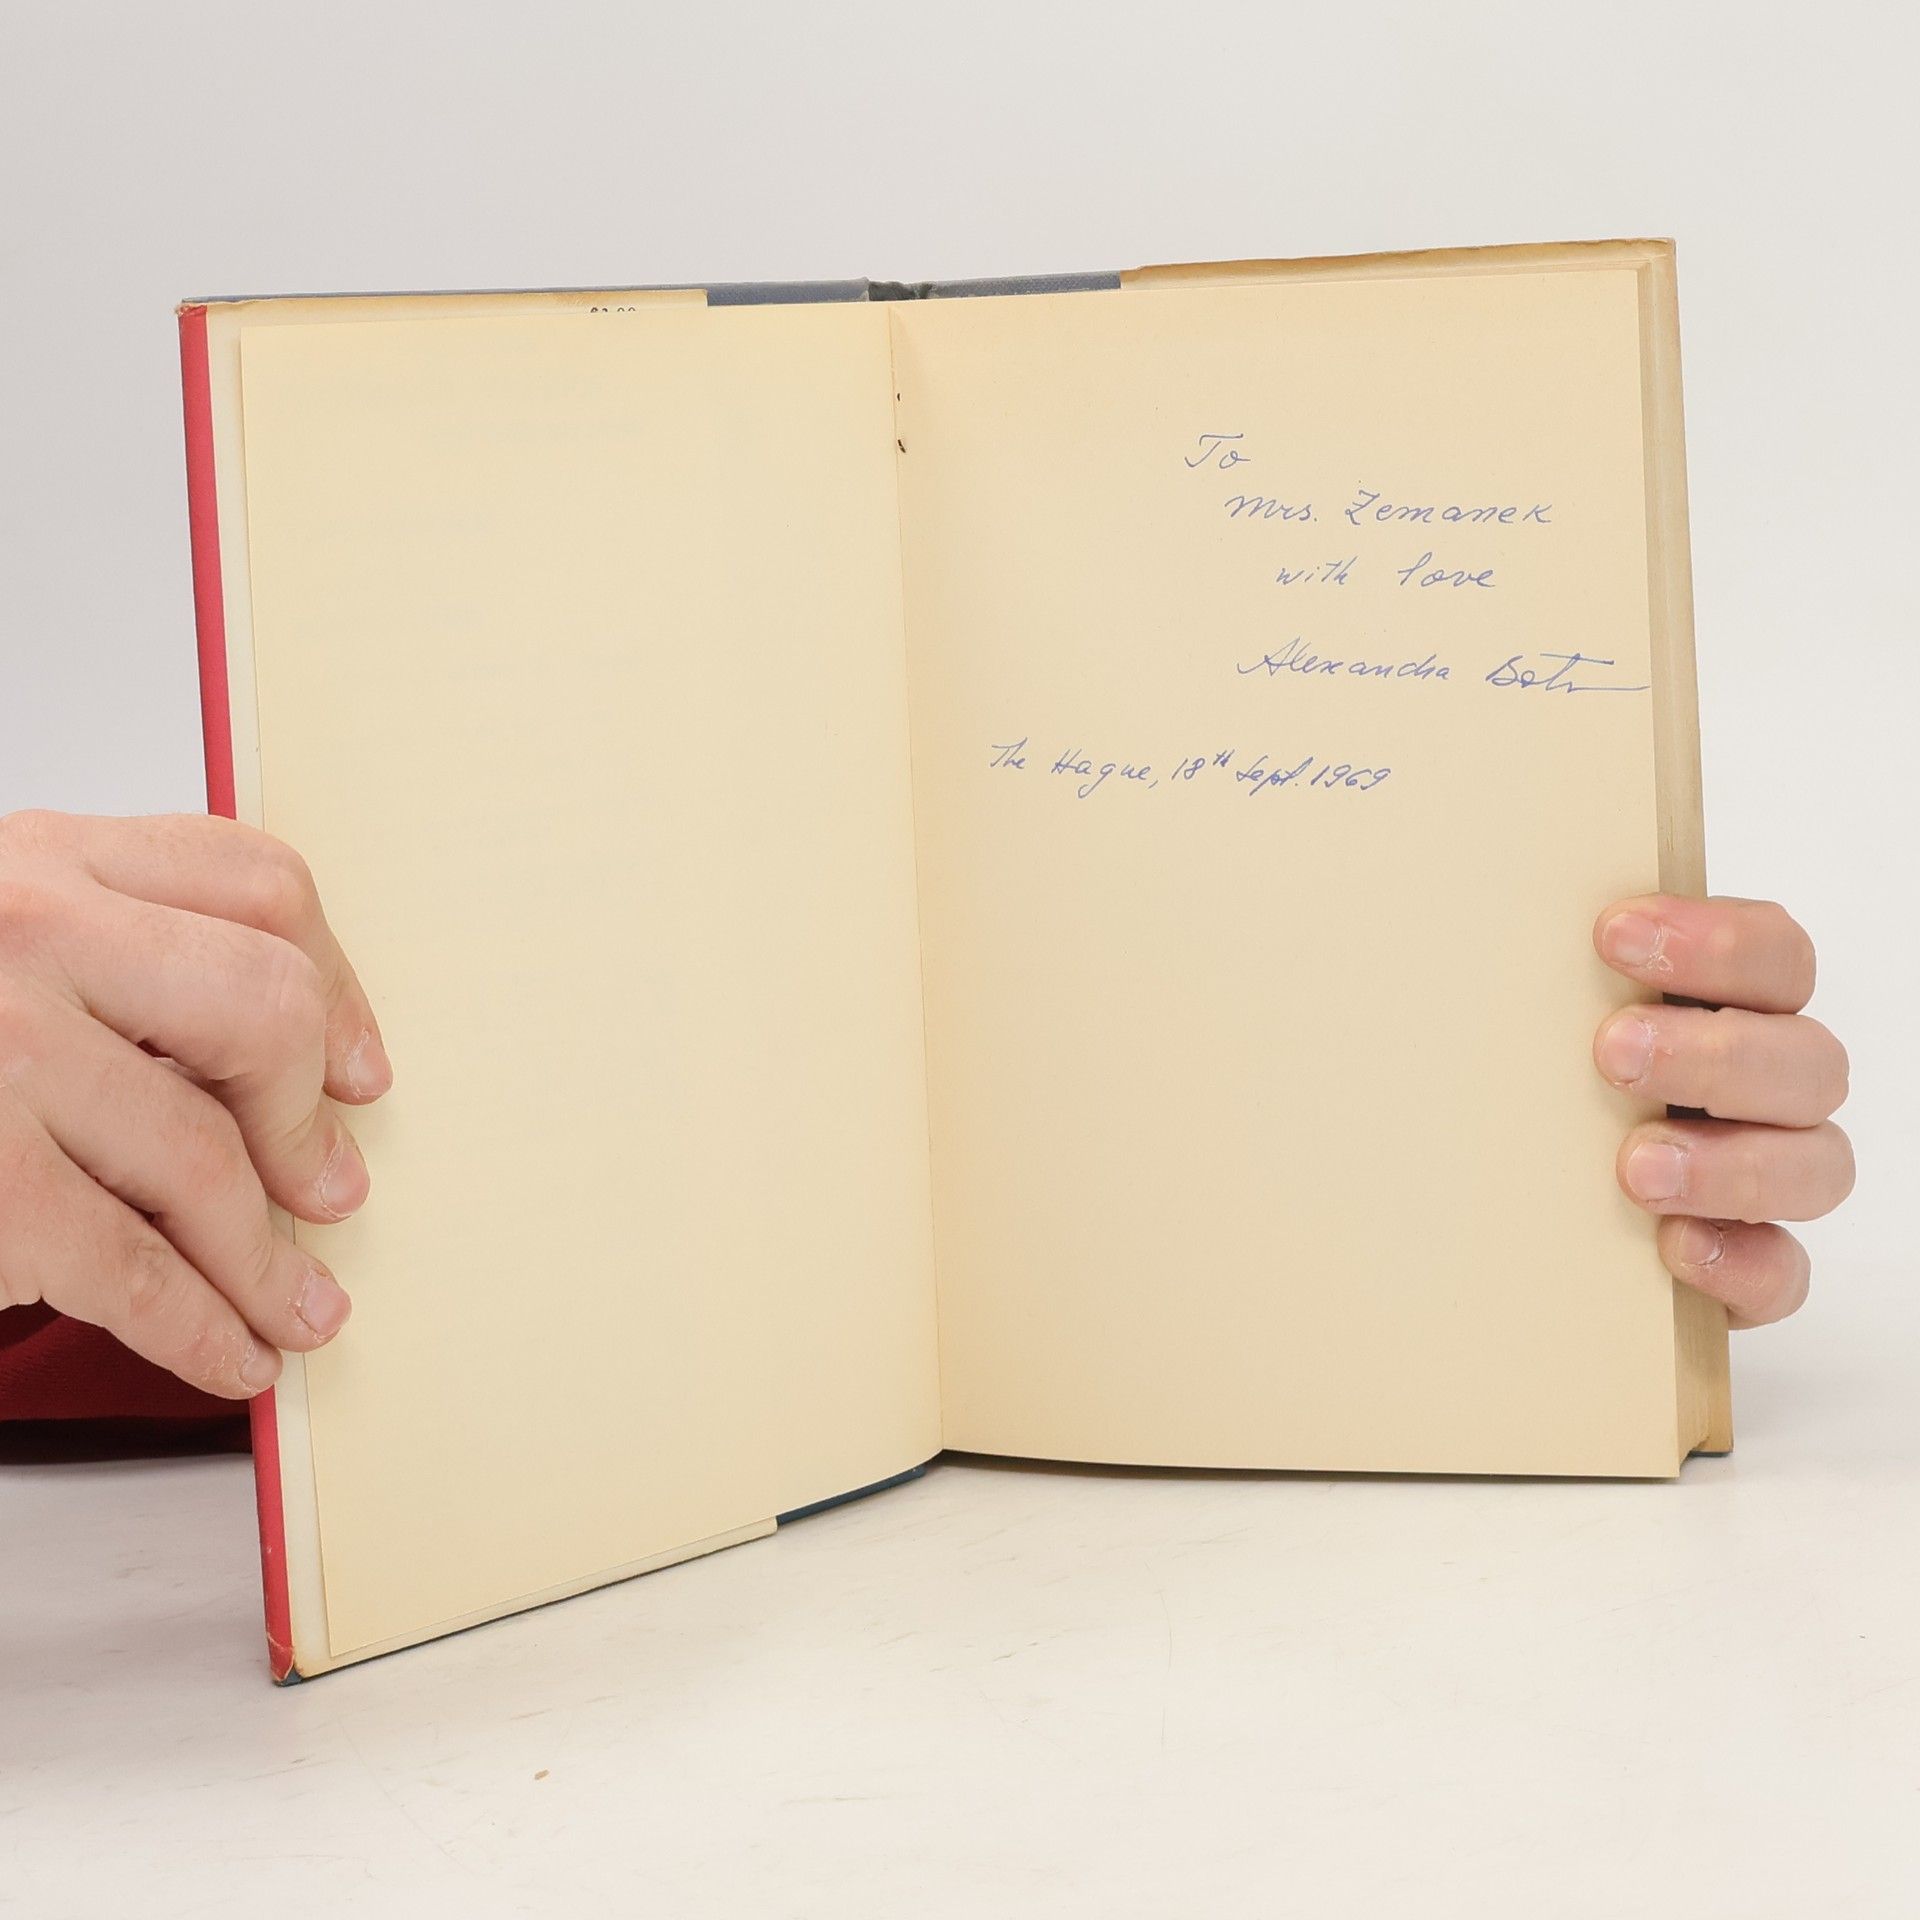 To
Mrs. Zemanek
with love
Alexandra
The Hague, 18th Sept. 1969